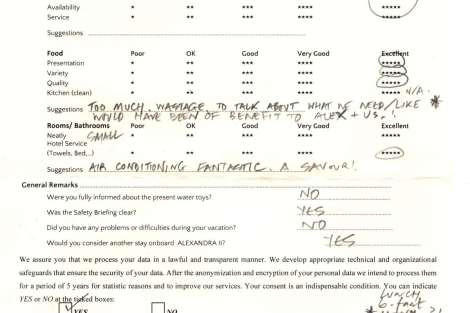 Availability * ** *** **** *****
Service * ** *** **** *****
Suggestions
Food Poor OK Good Very Good Excellent
Presentation * ** *** **** *****
Variety * ** *** **** *****
Quality * ** *** **** *****
Kitchen (clean) * ** *** **** ***** N/A.
Suggestions TOO MUCH WASTAGE TO TALK ABOUT WHAT WE NEED/LIKE *
WOULD HAVE BEEN OF BENEFIT TO ALEX + US.!
Rooms/ Bathrooms Poor OK Good Very Good Excellent
Neatly SMALL * ** *** **** *****
Hotel Service
(Towels, Bed,..) * ** *** **** *****
Suggestions AIR CONDITIONING FANTASTIC. A SAVOUR!
General Remarks
Were you fully informed about the present water toys? NO
Was the Safety Briefing clear? YES
Did you have any problems or difficulties during your vacation? NO
Would you consider another stay onboard ALEXANDRA II? YES
We assure you that we process your data in a lawful and transparent manner. We develop appropriate technical and organizational
safeguards that ensure the security of your data. After the anonymization and encryption of your personal data we intend to process them
for a period of 5 years for statistic reasons and to improve our services. Your consent is an indispensable condition. You can indicate
YES or NO at the ticked boxes:
YES NO